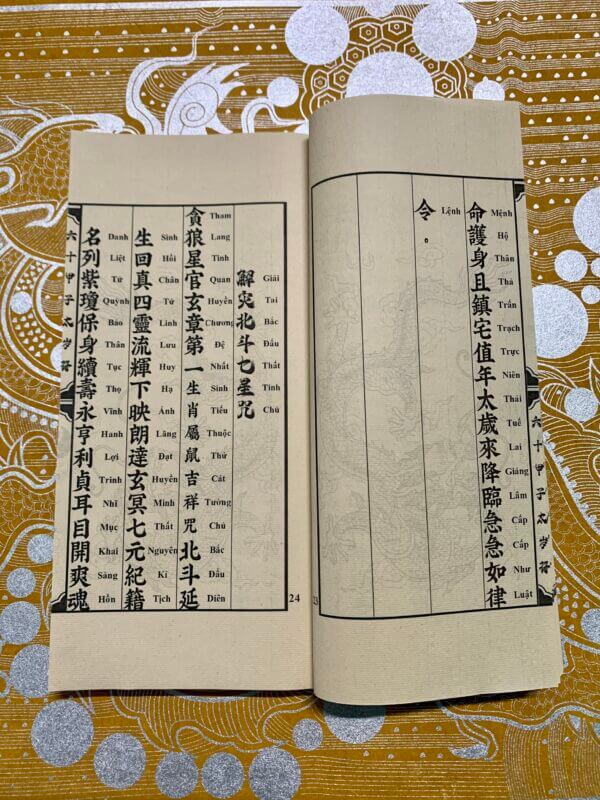 六十甲子太岁符
命護身且鎮宅值年太歲來降臨急急如律
Mệnh Hộ Thân Thả Trấn Trạch Trực Niên Thái Tuế Lai Giáng Lâm Cấp Cấp Như Luật
令。
Lệnh
23
解灾北斗七星咒
Giải Tai Bắc Đẩu Thất Tinh Chú
貪狼星官玄章第一生肖屬鼠吉祥咒北斗延
Tham Lang Tinh Quan Huyền Chương Đệ Nhất Sinh Tiếu Thuộc Thử Cát Tường Chú Bắc Đẩu Diên
生回真四靈流輝下映朗達玄冥七元紀籍
Sinh Hồi Chân Tứ Linh Lưu Huy Hạ Ánh Lãng Đạt Huyền Minh Thất Nguyên Kỉ Tịch
名列紫瓊保身續壽永亨利貞耳目開爽魂
Danh Liệt Tử Quỳnh Bảo Thân Tục Thọ Vĩnh Hanh Lợi Trinh Nhĩ Mục Khai Sảng Hồn
六十甲子太岁符
24